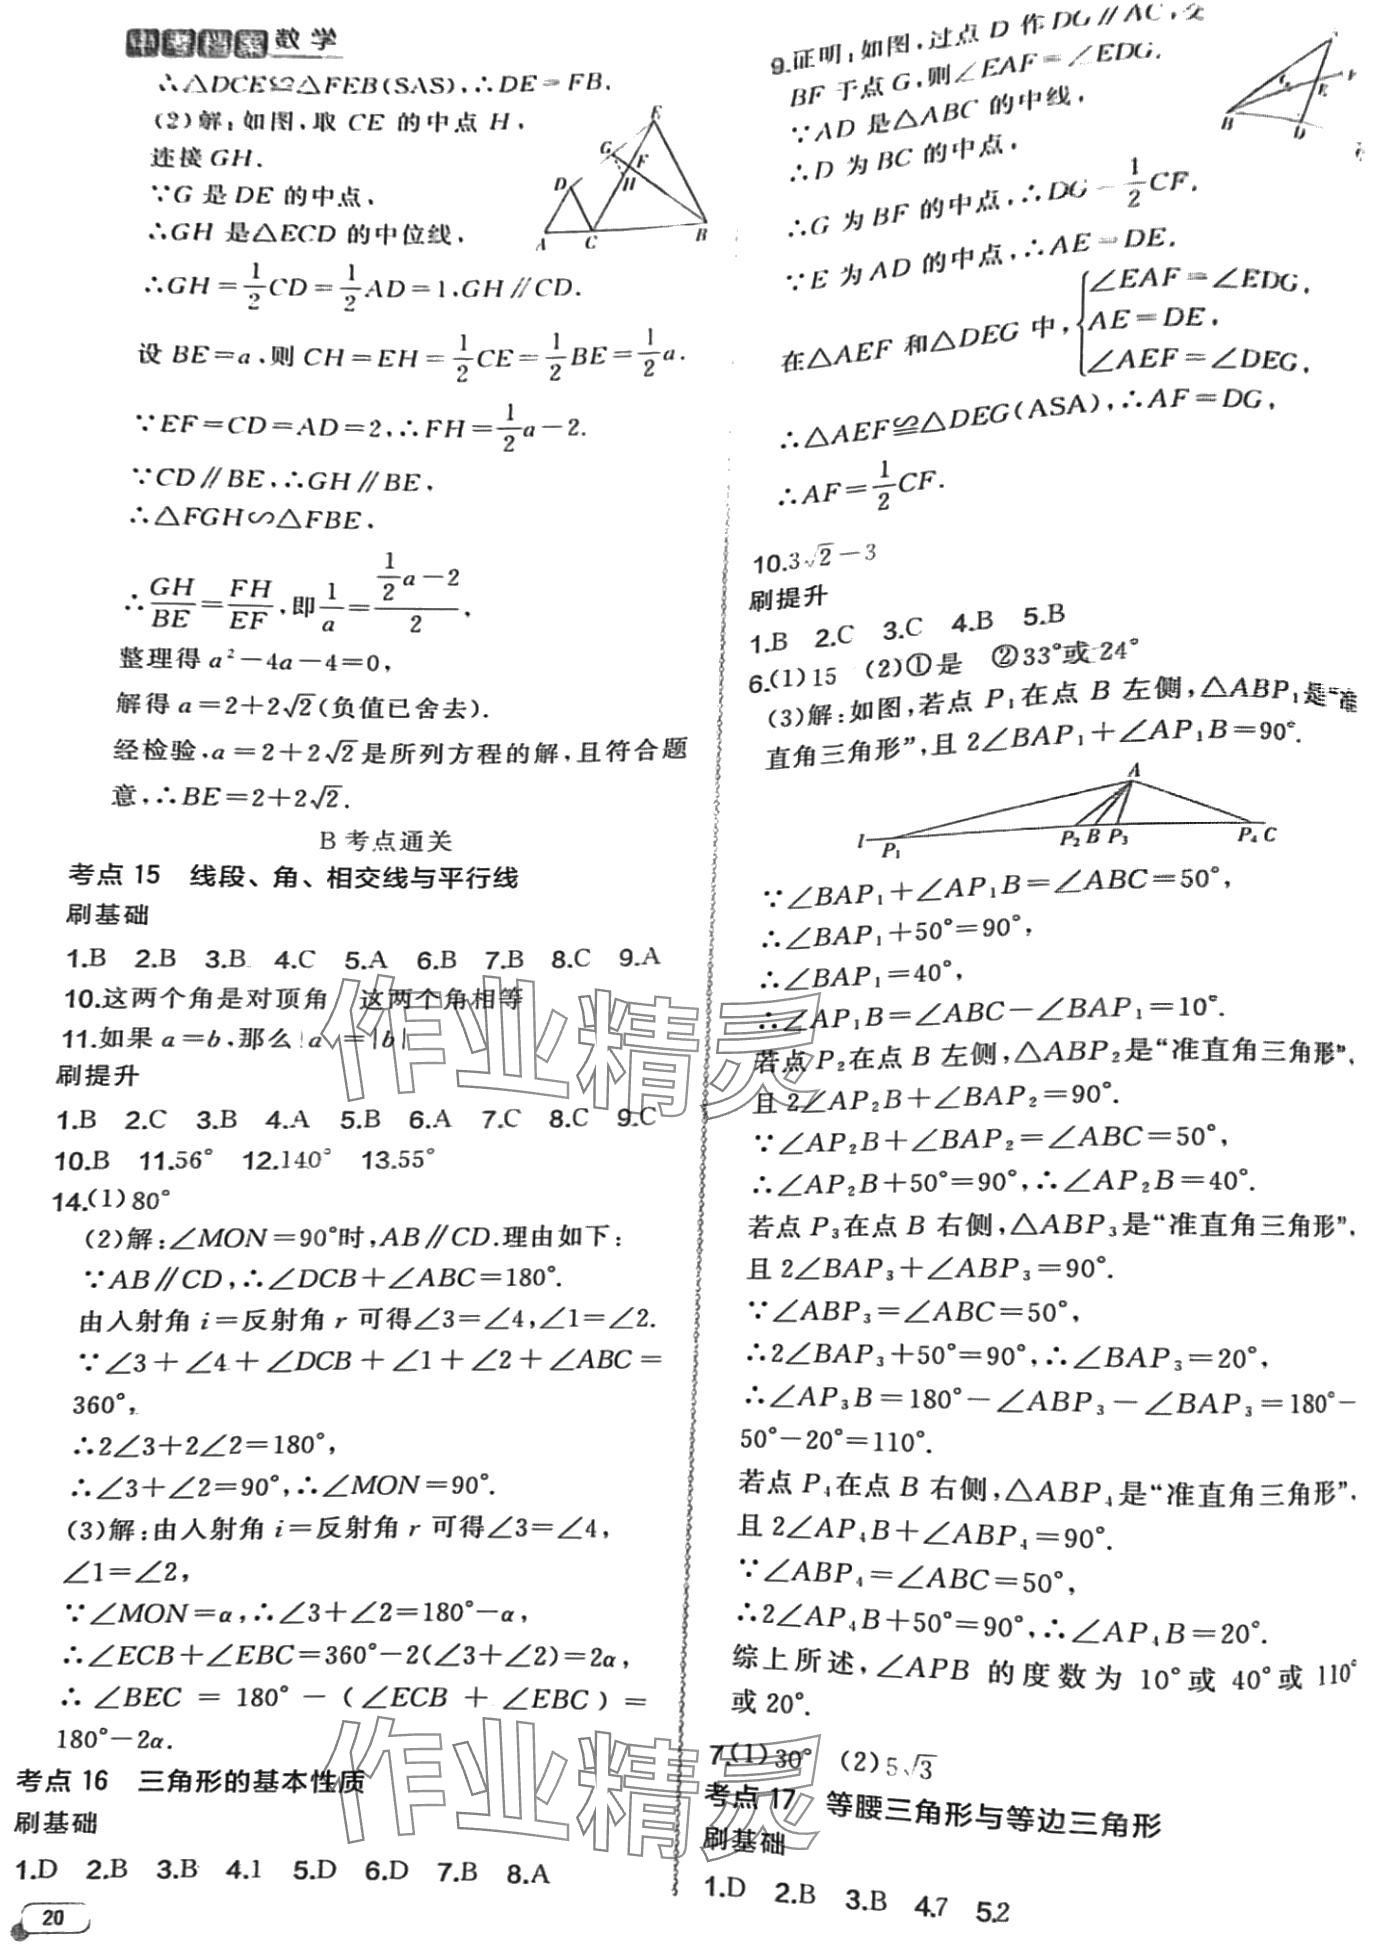 数学
∴△DCE≌△FEB(SAS),∴DE=FB.
(2)解:如图,取 CE 的中点 H,
连接 GH.
∵G 是 DE 的中点,
∴GH 是△ECD 的中位线,
∴GH=1/2CD=1/2AD=1,GH∥CD.
设 BE=a,则 CH=EH=1/2CE=1/2BE=1/2a.
∵EF=CD=AD=2,∴FH=1/2a-2.
∵CD∥BE,∴GH∥BE,
∴△FGH∽△FBE,
∴GH/BE=FH/EF,即1/a=(1/2a-2)/2,
整理得 a²-4a-4=0,
解得 a=2+2√2(负值已舍去).
经检验,a=2+2√2是所列方程的解,且符合题
意,∴BE=2+2√2.
E
G
F
D
H
A
C
B
B 考点通关
考点 15 线段、角、相交线与平行线
刷基础
1.B 2.B 3.B 4.C 5.A 6.B 7.B 8.C 9.A
10.这两个角是对顶角 这两个角相等
11.如果 a=b,那么|a|=|b|
刷提升
1.B 2.C 3.B 4.A 5.B 6.A 7.C 8.C 9.C
10.B 11.56° 12.140° 13.55°
14.(1)80°
(2)解:∠MON=90°时,AB∥CD.理由如下:
∵AB∥CD,∴∠DCB+∠ABC=180°.
由入射角 i=反射角 r 可得∠3=∠4,∠1=∠2.
∵∠3+∠4+∠DCB+∠1+∠2+∠ABC=
360°,
∴2∠3+2∠2=180°,
∴∠3+∠2=90°,∴∠MON=90°.
(3)解:由入射角 i=反射角 r 可得∠3=∠4,
∠1=∠2,
∵∠MON=α,∴∠3+∠2=180°-α,
∴∠ECB+∠EBC=360°-2(∠3+∠2)=2α,
∴∠BEC=180°-(∠ECB+∠EBC)=
180°-2α.
考点 16 三角形的基本性质
刷基础
1.D 2.B 3.B 4.1 5.D 6.D 7.B 8.A
20
9.证明:如图,过点 D 作 DG∥AC,交
BF 于点 G,则∠EAF=∠EDG.
∵AD 是△ABC 的中线,
∴D 为 BC 的中点,
∴G 为 BF 的中点,∴DG=1/2CF.
∵E 为 AD 的中点,∴AE=DE.
在△AEF 和△DEG 中,{∠EAF=∠EDG,
AE=DE,
∠AEF=∠DEG,
∴△AEF≌△DEG(ASA),∴AF=DG,
∴AF=1/2CF.
B
D
E
10.3√2-3
刷提升
1.B 2.C 3.C 4.B 5.B
6.(1)15 (2)①是 ②33°或24°
(3)解:如图,若点 P₁在点 B 左侧,△ABP₁是“准
直角三角形”,且 2∠BAP₁+∠AP₁B=90°.
A
l
P₁
P₂
B
P₃
P₄
C
∵∠BAP₁+∠AP₁B=∠ABC=50°,
∴∠BAP₁+50°=90°,
∴∠BAP₁=40°,
∴∠AP₁B=∠ABC-∠BAP₁=10°.
若点 P₂在点 B 左侧,△ABP₂是“准直角三角形”,
且 2∠AP₂B+∠BAP₂=90°.
∵∠AP₂B+∠BAP₂=∠ABC=50°,
∴∠AP₂B+50°=90°,∴∠AP₂B=40°.
若点 P₃在点 B 右侧,△ABP₃是“准直角三角形”,
且 2∠BAP₃+∠ABP₃=90°.
∵∠ABP₃=∠ABC=50°,
∴2∠BAP₃+50°=90°,∴∠BAP₃=20°,
∴∠AP₃B=180°-∠ABP₃-∠BAP₃=180°-
50°-20°=110°.
若点 P₄在点 B 右侧,△ABP₄是“准直角三角形”,
且 2∠AP₄B+∠ABP₄=90°.
∵∠ABP₄=∠ABC=50°,
∴2∠AP₄B+50°=90°,∴∠AP₄B=20°.
综上所述,∠APB 的度数为 10°或 40°或 110°
或 20°.
7.(1)30° (2)5√3
考点 17 等腰三角形与等边三角形
刷基础
1.D 2.B 3.B 4.7 5.2
作业精灵
作业精灵